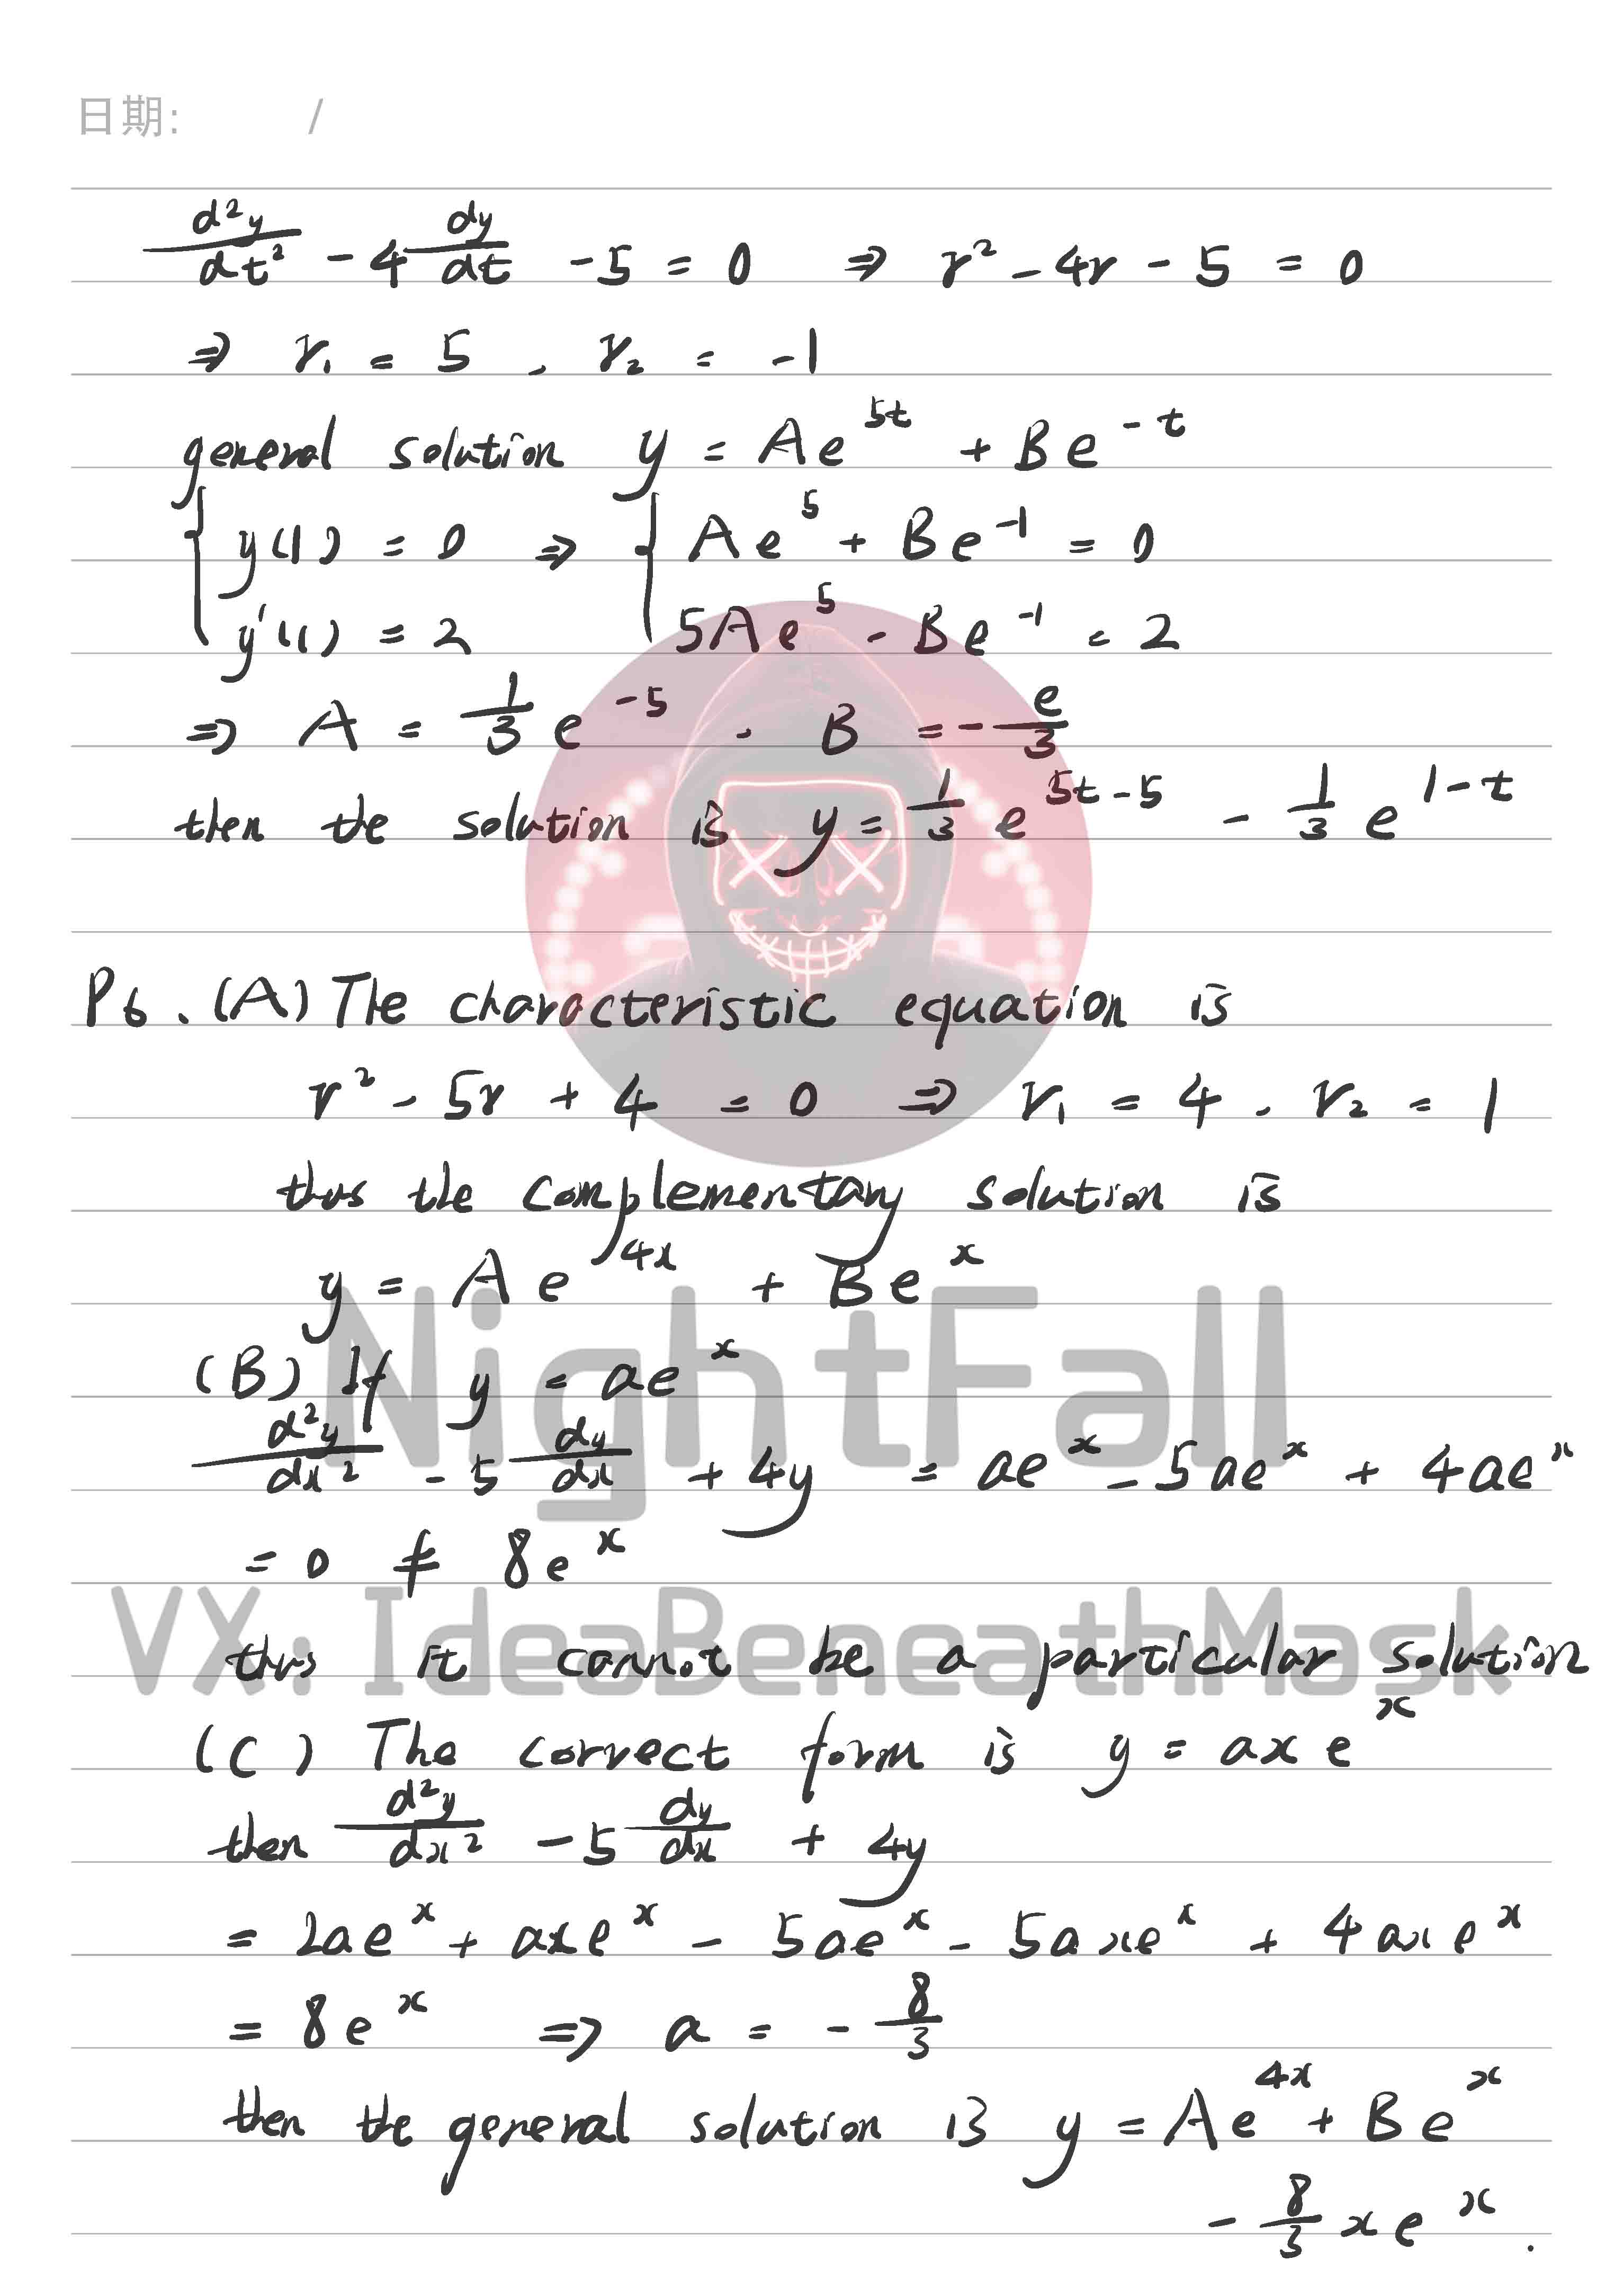 日期: /
d²y/dt² - 4 dy/dt - 5 = 0 ⇒ r² - 4r - 5 = 0
⇒ r₁ = 5 , r₂ = -1
general solution y = Ae^{5t} + Be^{-t}
{ y(1) = 0 ⇒ { Ae^5 + Be^{-1} = 0
y'(1) = 2 5Ae^5 - Be^{-1} = 2
⇒ A = 1/3 e^{-5} . B = - e/3
then the solution is y = 1/3 e^{5t-5} - 1/3 e^{1-t}
P6. (A) The characteristic equation is
r² - 5r + 4 = 0 ⇒ r₁ = 4 . r₂ = 1
thus the complementary solution is
y = Ae^{4x} + Be^x
NightFall
(B) If y = ae^x
d²y/dx² - 5 dy/dx + 4y = ae^x - 5ae^x + 4ae^x
= 0 ≠ 8e^x
VX: IdeaBeneathMask
thus it cannot be a particular solution
(C) The correct form is y = axe^x
then d²y/dx² - 5 dy/dx + 4y
= 2ae^x + axe^x - 5ae^x - 5axe^x + 4axe^x
= 8e^x ⇒ a = - 8/3
then the general solution is y = Ae^{4x} + Be^x
- 8/3 xe^x .